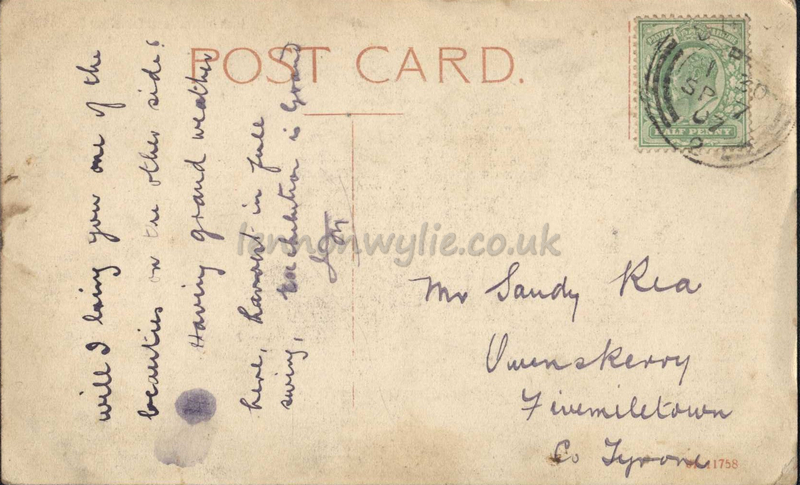 POST CARD.
will I bring you one of the
beauties on the other side?
Having grand weather
here, harvest in full
swing, Exhibition is Grand
Mr Sandy Rea
Owenskerry
Fivemiletown
Co Tyrone
HALF PENNY
SP
07
11758
lennonwylie.co.uk